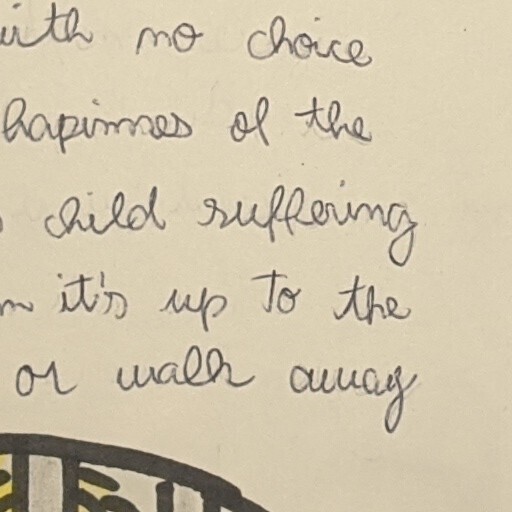 with no choice
hapinnes of the
child suffering
it's up to the
or walk away